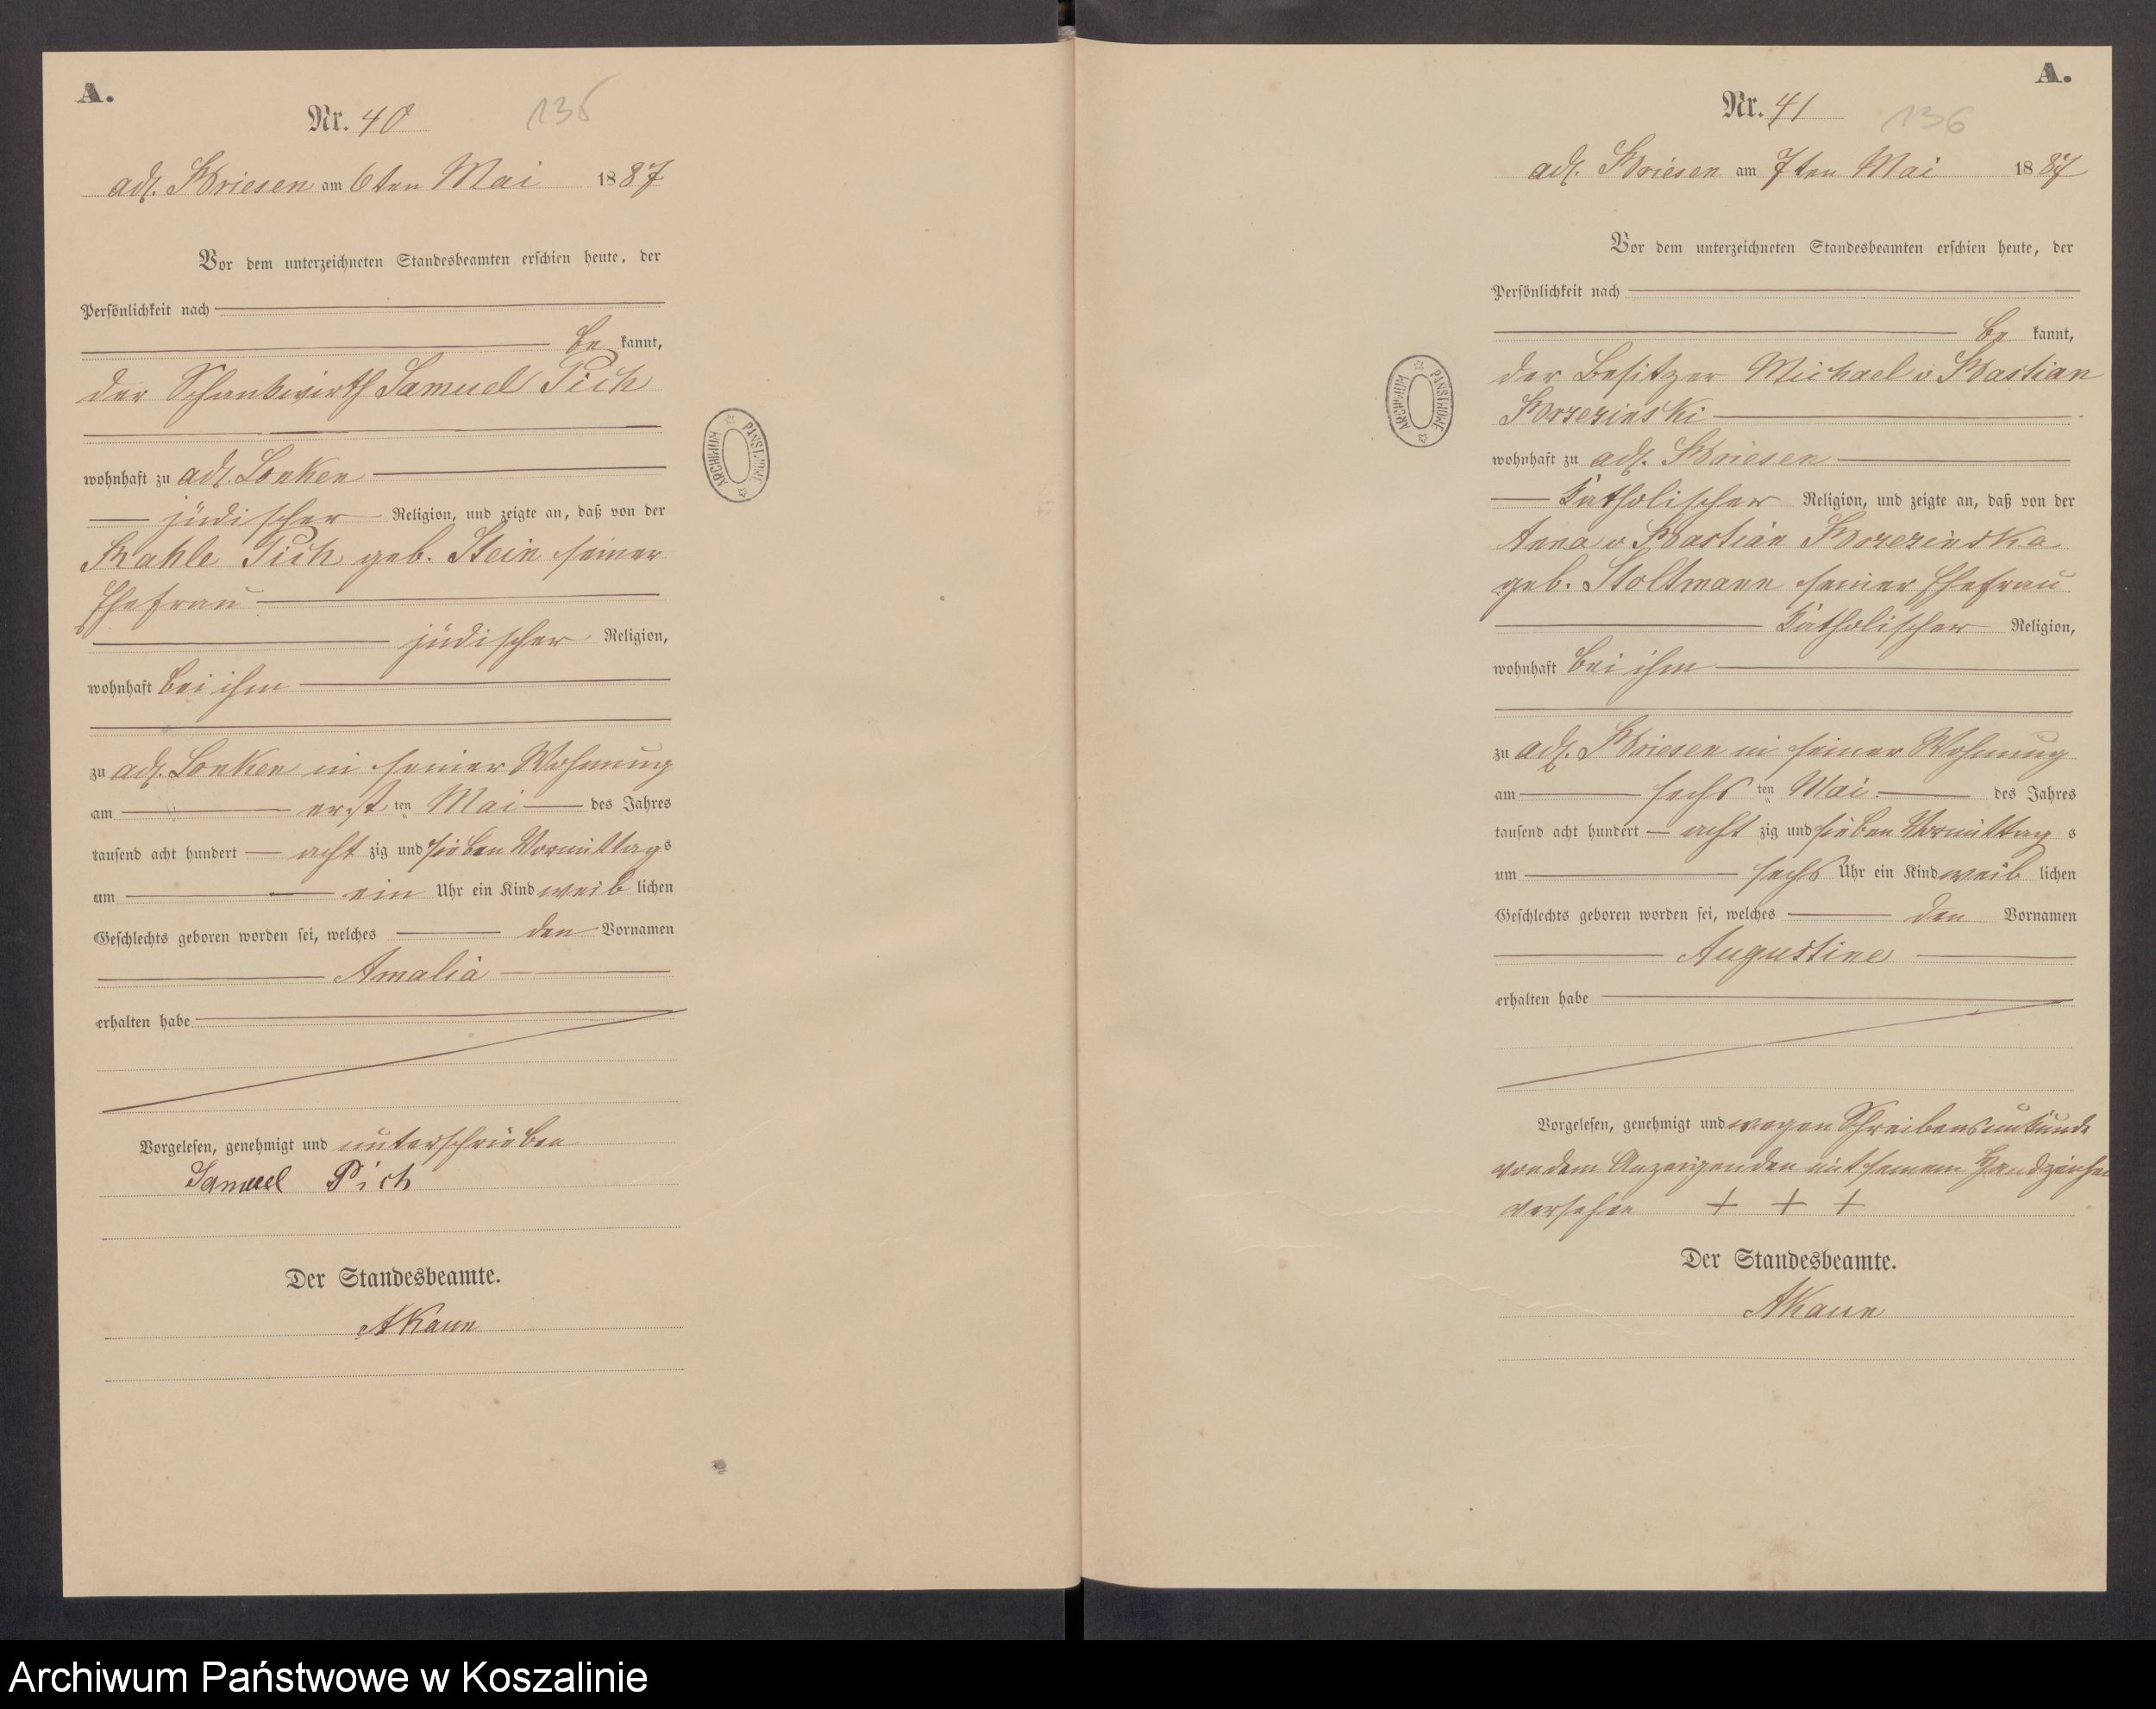 A.
Nr. 40
135
adl. Briesen am 6ten Mai 1887
Vor dem unterzeichneten Standesbeamten erschien heute, der
Persönlichkeit nach
be kannt,
der Schankwirth Samuel Pich
wohnhaft zu adl. Lonken
jüdischer Religion, und zeigte an, daß von der
Rahle Pich geb. Stein seiner
Ehefrau
jüdischer Religion,
wohnhaft bei ihm
zu adl. Lonken in seiner Wohnung
am erst ten Mai des Jahres
tausend acht hundert acht zig und sieben Vormittags
um ein Uhr ein Kind weib lichen
Geschlechts geboren worden sei, welches den Vornamen
Amalia
erhalten habe
Vorgelesen, genehmigt und unterschrieben
Samuel Pich
Der Standesbeamte.
AKaun
ARCHIWUM PAŃSTWOWE
A.
Nr. 41
136
adl. Briesen am 7ten Mai 1887
Vor dem unterzeichneten Standesbeamten erschien heute, der
Persönlichkeit nach
be kannt,
der Besitzer Michael v Bastian
Brzezinski
wohnhaft zu adl. Briesen
katholischer Religion, und zeigte an, daß von der
Anna v Bastian Brzezinska
geb. Stoltmann seiner Ehefrau
katholischer Religion,
wohnhaft bei ihm
zu adl. Briesen in seiner Wohnung
am sechs ten Mai des Jahres
tausend acht hundert acht zig und sieben Vormittag s
um sechs Uhr ein Kind weib lichen
Geschlechts geboren worden sei, welches den Vornamen
Augustine
erhalten habe
Vorgelesen, genehmigt und wegen Schreibensunkunde
von dem Anzeigenden mit seinem Handzeichen
versehen + + +
Der Standesbeamte.
AKaun
ARCHIWUM PAŃSTWOWE
Archiwum Państwowe w Koszalinie